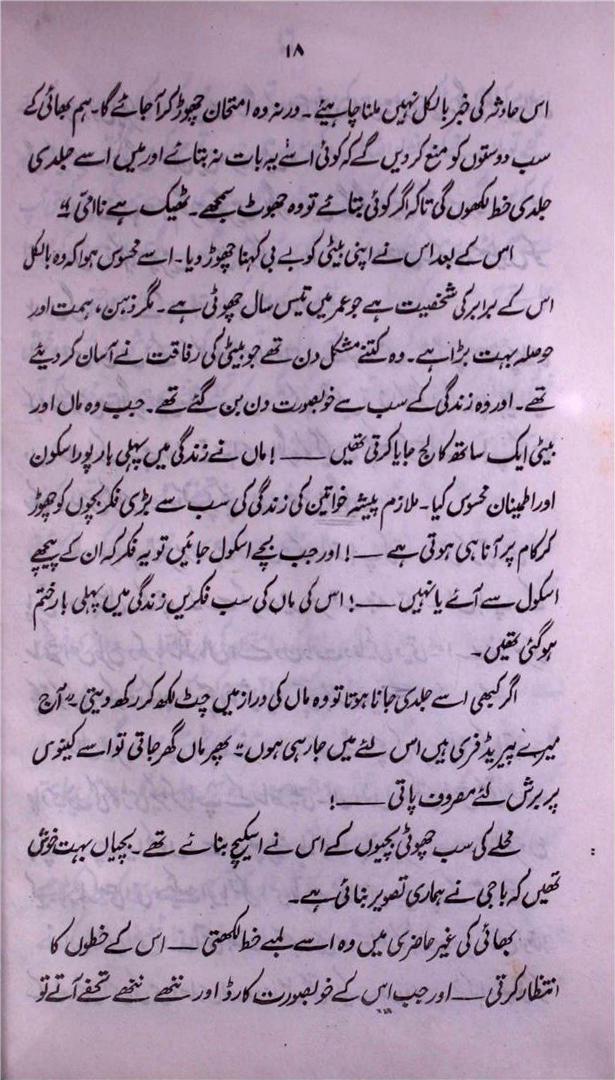 ۱۸
اس حادثہ کی خبر بالکل نہیں ملنا چاہیئے ۔ ورنہ وہ امتحان چھوڑ کر آجائے گا۔ ہم بھائی کے
سب دوستوں کو منع کر دیں گے کہ کوئی اسے یہ بات نہ بتائے اور میں اسے جلدی
جلدی خط لکھوں گی تاکہ اگر کوئی بتائے تو وہ جھوٹ سمجھے۔ ٹھیک ہے نا امّی ؟"
اس کے بعد اس نے اپنی بیٹی کو بے بی کہنا چھوڑ دیا۔ اسے محسوس ہوا کہ وہ بالکل
اس کے برابر کی شخصیت ہے جو عمر میں تیس سال چھوٹی ہے۔ مگر ذہن، ہمت اور
حوصلہ بہت بڑا ہے۔ وہ کتنے مشکل دن تھے جو بیٹی کی رفاقت نے آسان کر دیئے
تھے۔ اور وہ زندگی کے سب سے خوبصورت دن بن گئے تھے۔ جب وہ ماں اور
بیٹی ایک ساتھ کالج جایا کرتی تھیں ——! ماں نے زندگی میں پہلی بار پورا سکون
اور اطمینان محسوس کیا۔ ملازم پیشہ خواتین کی زندگی کی سب سے بڑی فکر بچوں کو چھوڑ
کر کام پر آنا ہی ہوتی ہے —! اور جب بچے اسکول جائیں تو یہ فکر کہ ان کے پیچھے
اسکول سے آئے یا نہیں ——! اس کی ماں کی سب فکریں زندگی میں پہلی بار ختم
ہو گئی تھیں۔
اگر کبھی اسے جلدی جانا ہوتا تو وہ ماں کی دراز میں چٹ لکھ کر رکھ دیتی " آج
میرے پیریڈ فری ہیں اس لئے میں جا رہی ہوں " پھر ماں گھر جاتی تو اسے کینوس
پر برش لئے مصروف پاتی ——!
محلے کی سب چھوٹی بچیوں کے اس نے اسکیچ بنائے تھے۔ بچیاں بہت خوش
تھیں کہ باجی نے ہماری تصویر بنائی ہے۔
بھائی کی غیر حاضری میں وہ اسے لمبے خط لکھتی — اس کے خطوں کا
انتظار کرتی — اور جب اس کے خوبصورت کارڈ اور ننھے ننھے تحفے آتے تو